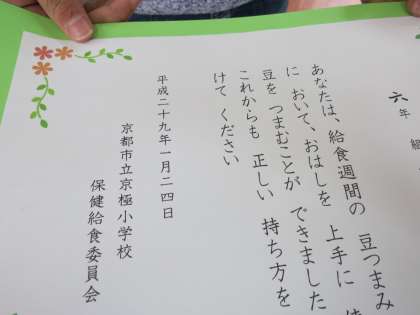 六年
あなたは、給食週間の 豆つまみ
に おいて、おはしを 上手に
豆を つまむことが できました
これからも 正しい 持ち方を
けて ください
平成二十九年一月二四日
京都市立京極小学校
保健給食委員会